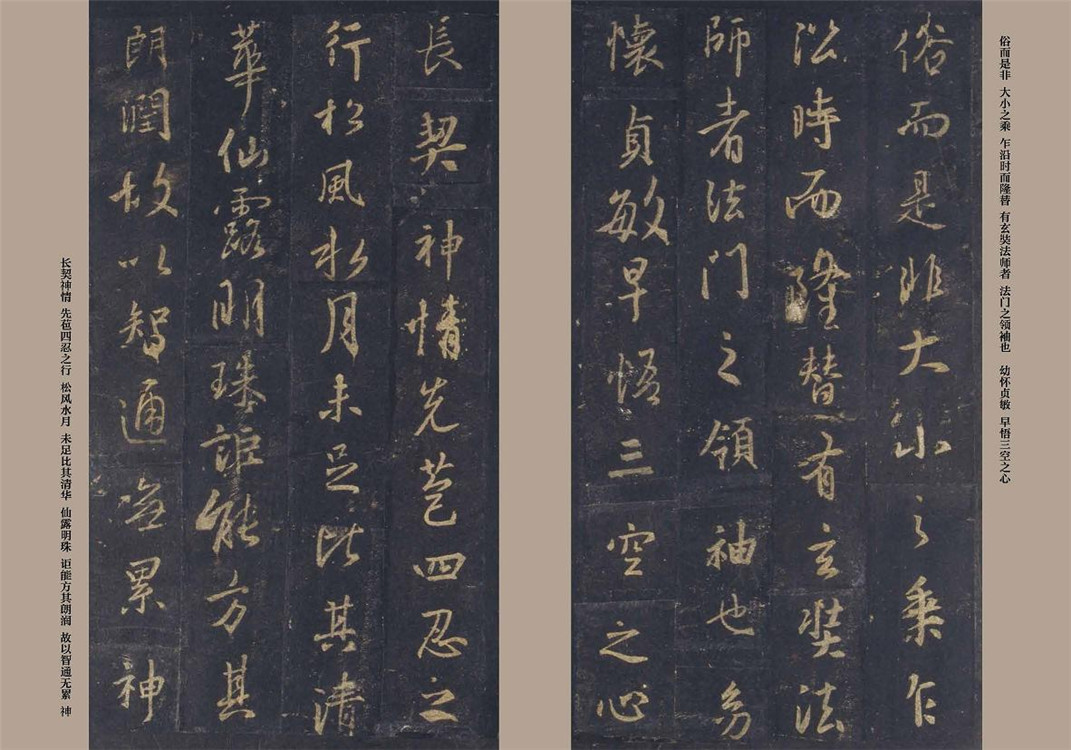 俗而是非 大小之乘 乍沿时而隆替 有玄奘法师者 法门之领袖也 幼怀贞敏 早悟三空之心
俗而是非大小之乘乍
沿時而隆替有玄奘法
師者法門之領袖也幼
懷貞敏早悟三空之心
長契神情先苞四忍之
行松風水月未足比其清
華仙露明珠詎能方其
朗潤故以智通無累神
长契神情 先苞四忍之行 松风水月 未足比其清华 仙露明珠 讵能方其朗润 故以智通无累 神